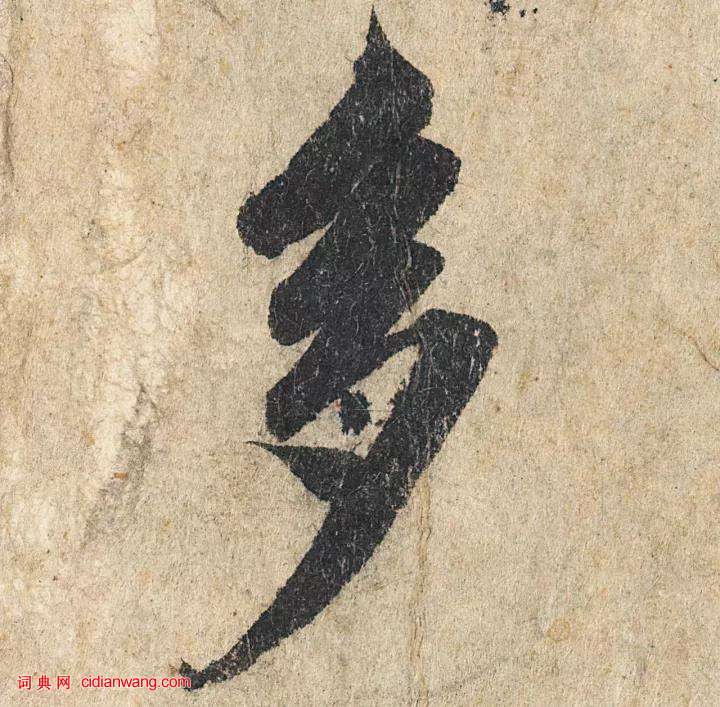 多
词典网 cidianwang.com